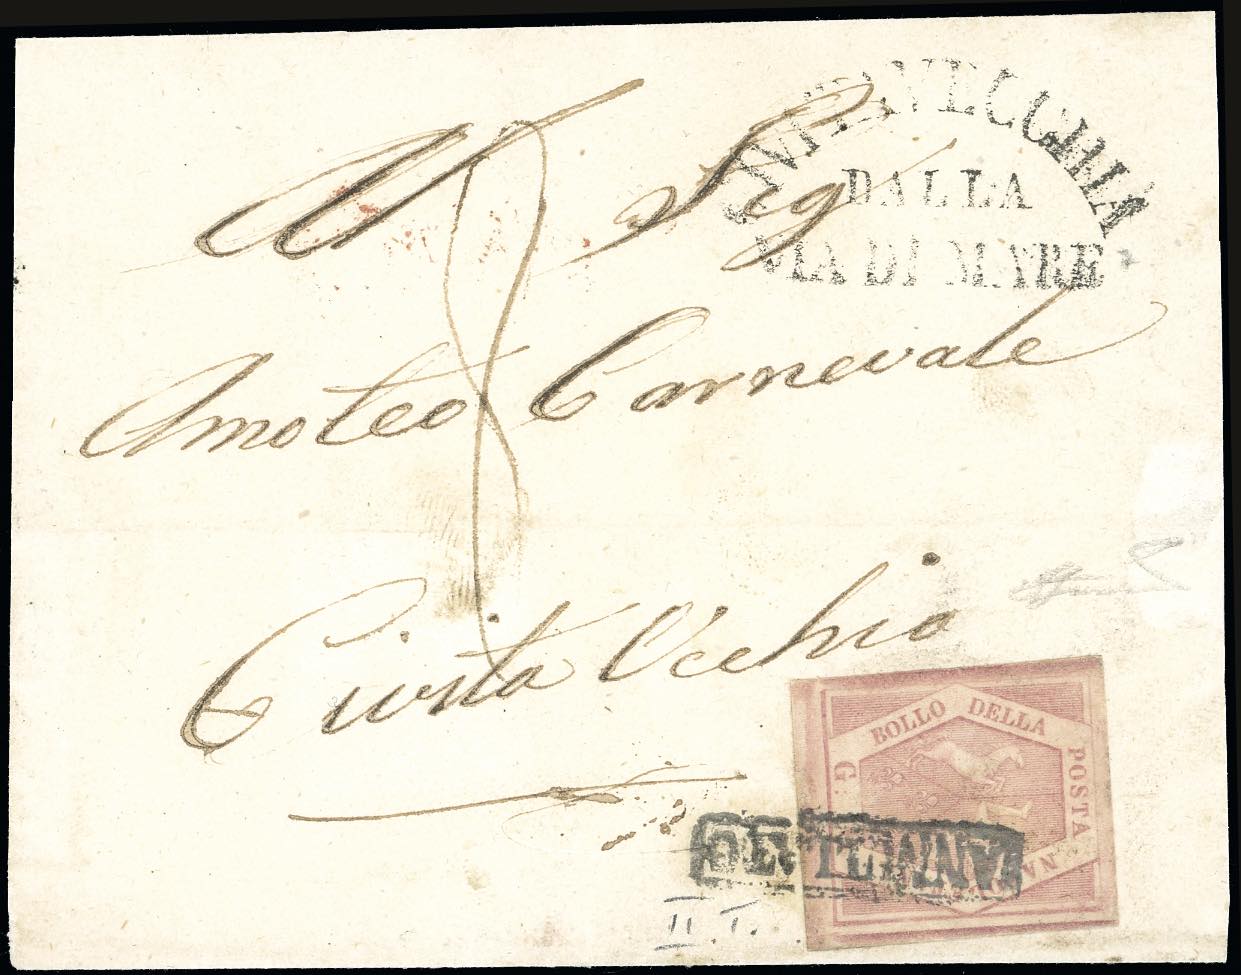 CIVITAVECCHIA
DALLA
VIA DI MARE
Al Sig
8
Amoteo Carnevale
Civita Vechia
BOLLO DELLA POSTA NA
G.
II. T.